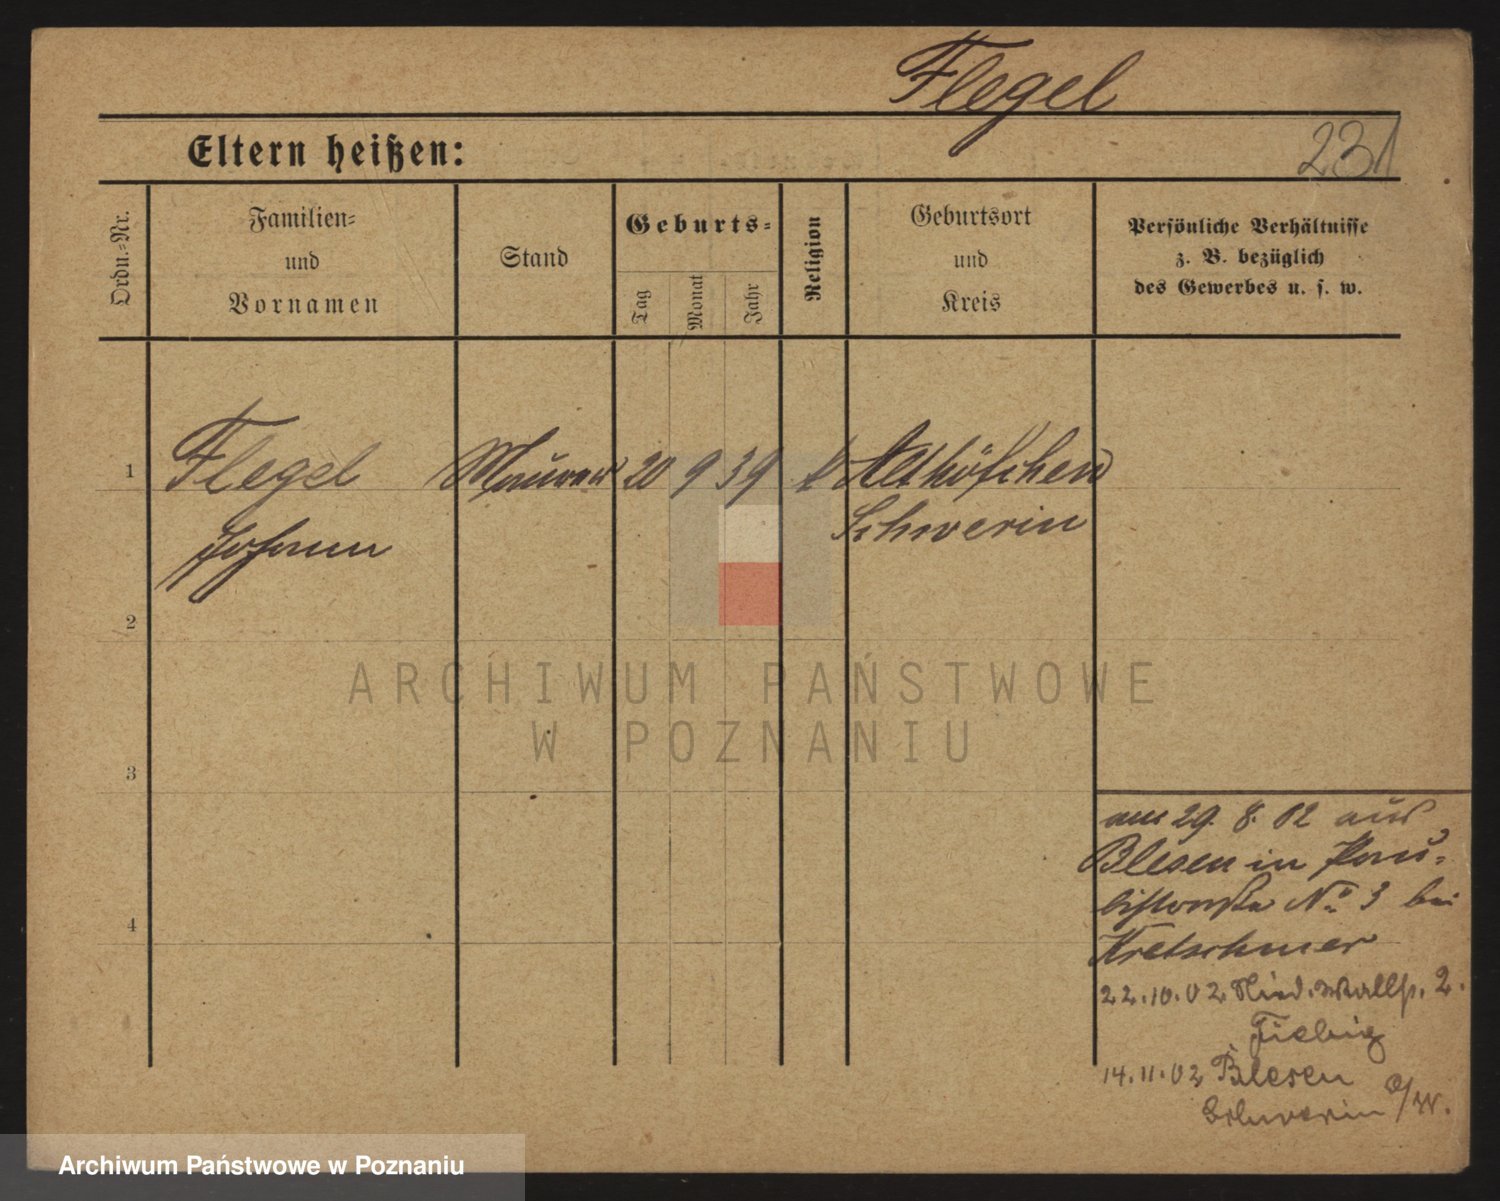 Flegel
231
Eltern heißen:
Ordn.-Nr.
Familien-
und
Vornamen
Stand
Geburts-
Tag
Monat
Jahr
Religion
Geburtsort
und
Kreis
Persönliche Verhältnisse
z. B. bezüglich
des Gewerbes u. s. w.
1 Flegel Maurer 20 9 39 k Althöfchen
Johann Schwerin
2
3
4
am 29. 8. 02 aus
Blesen in Pau-
listraße No 3 bei
Kretschmer
22.10.02 Nied. Wallst. 2.
Fiebig
14.11.02 Blesen
Schwerin a/W.
ARCHIWUM PAŃSTWOWE
W POZNANIU
Archiwum Państwowe w Poznaniu